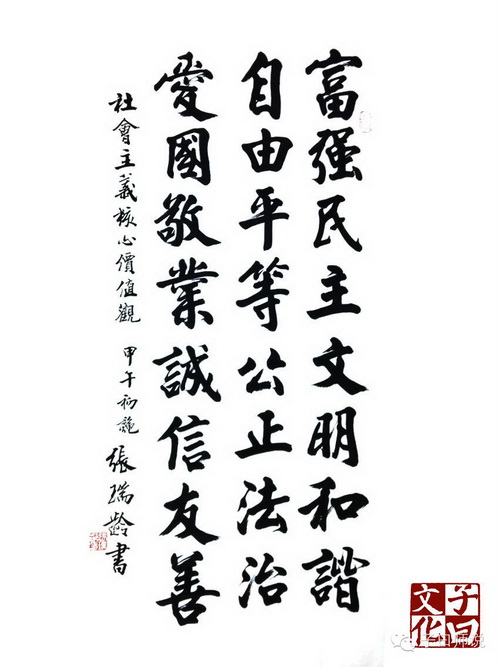 富强民主文明和諧
自由平等公正法治
愛國敬業誠信友善
社會主義核心價值觀
甲午初
張瑞龄書
子曰
文化